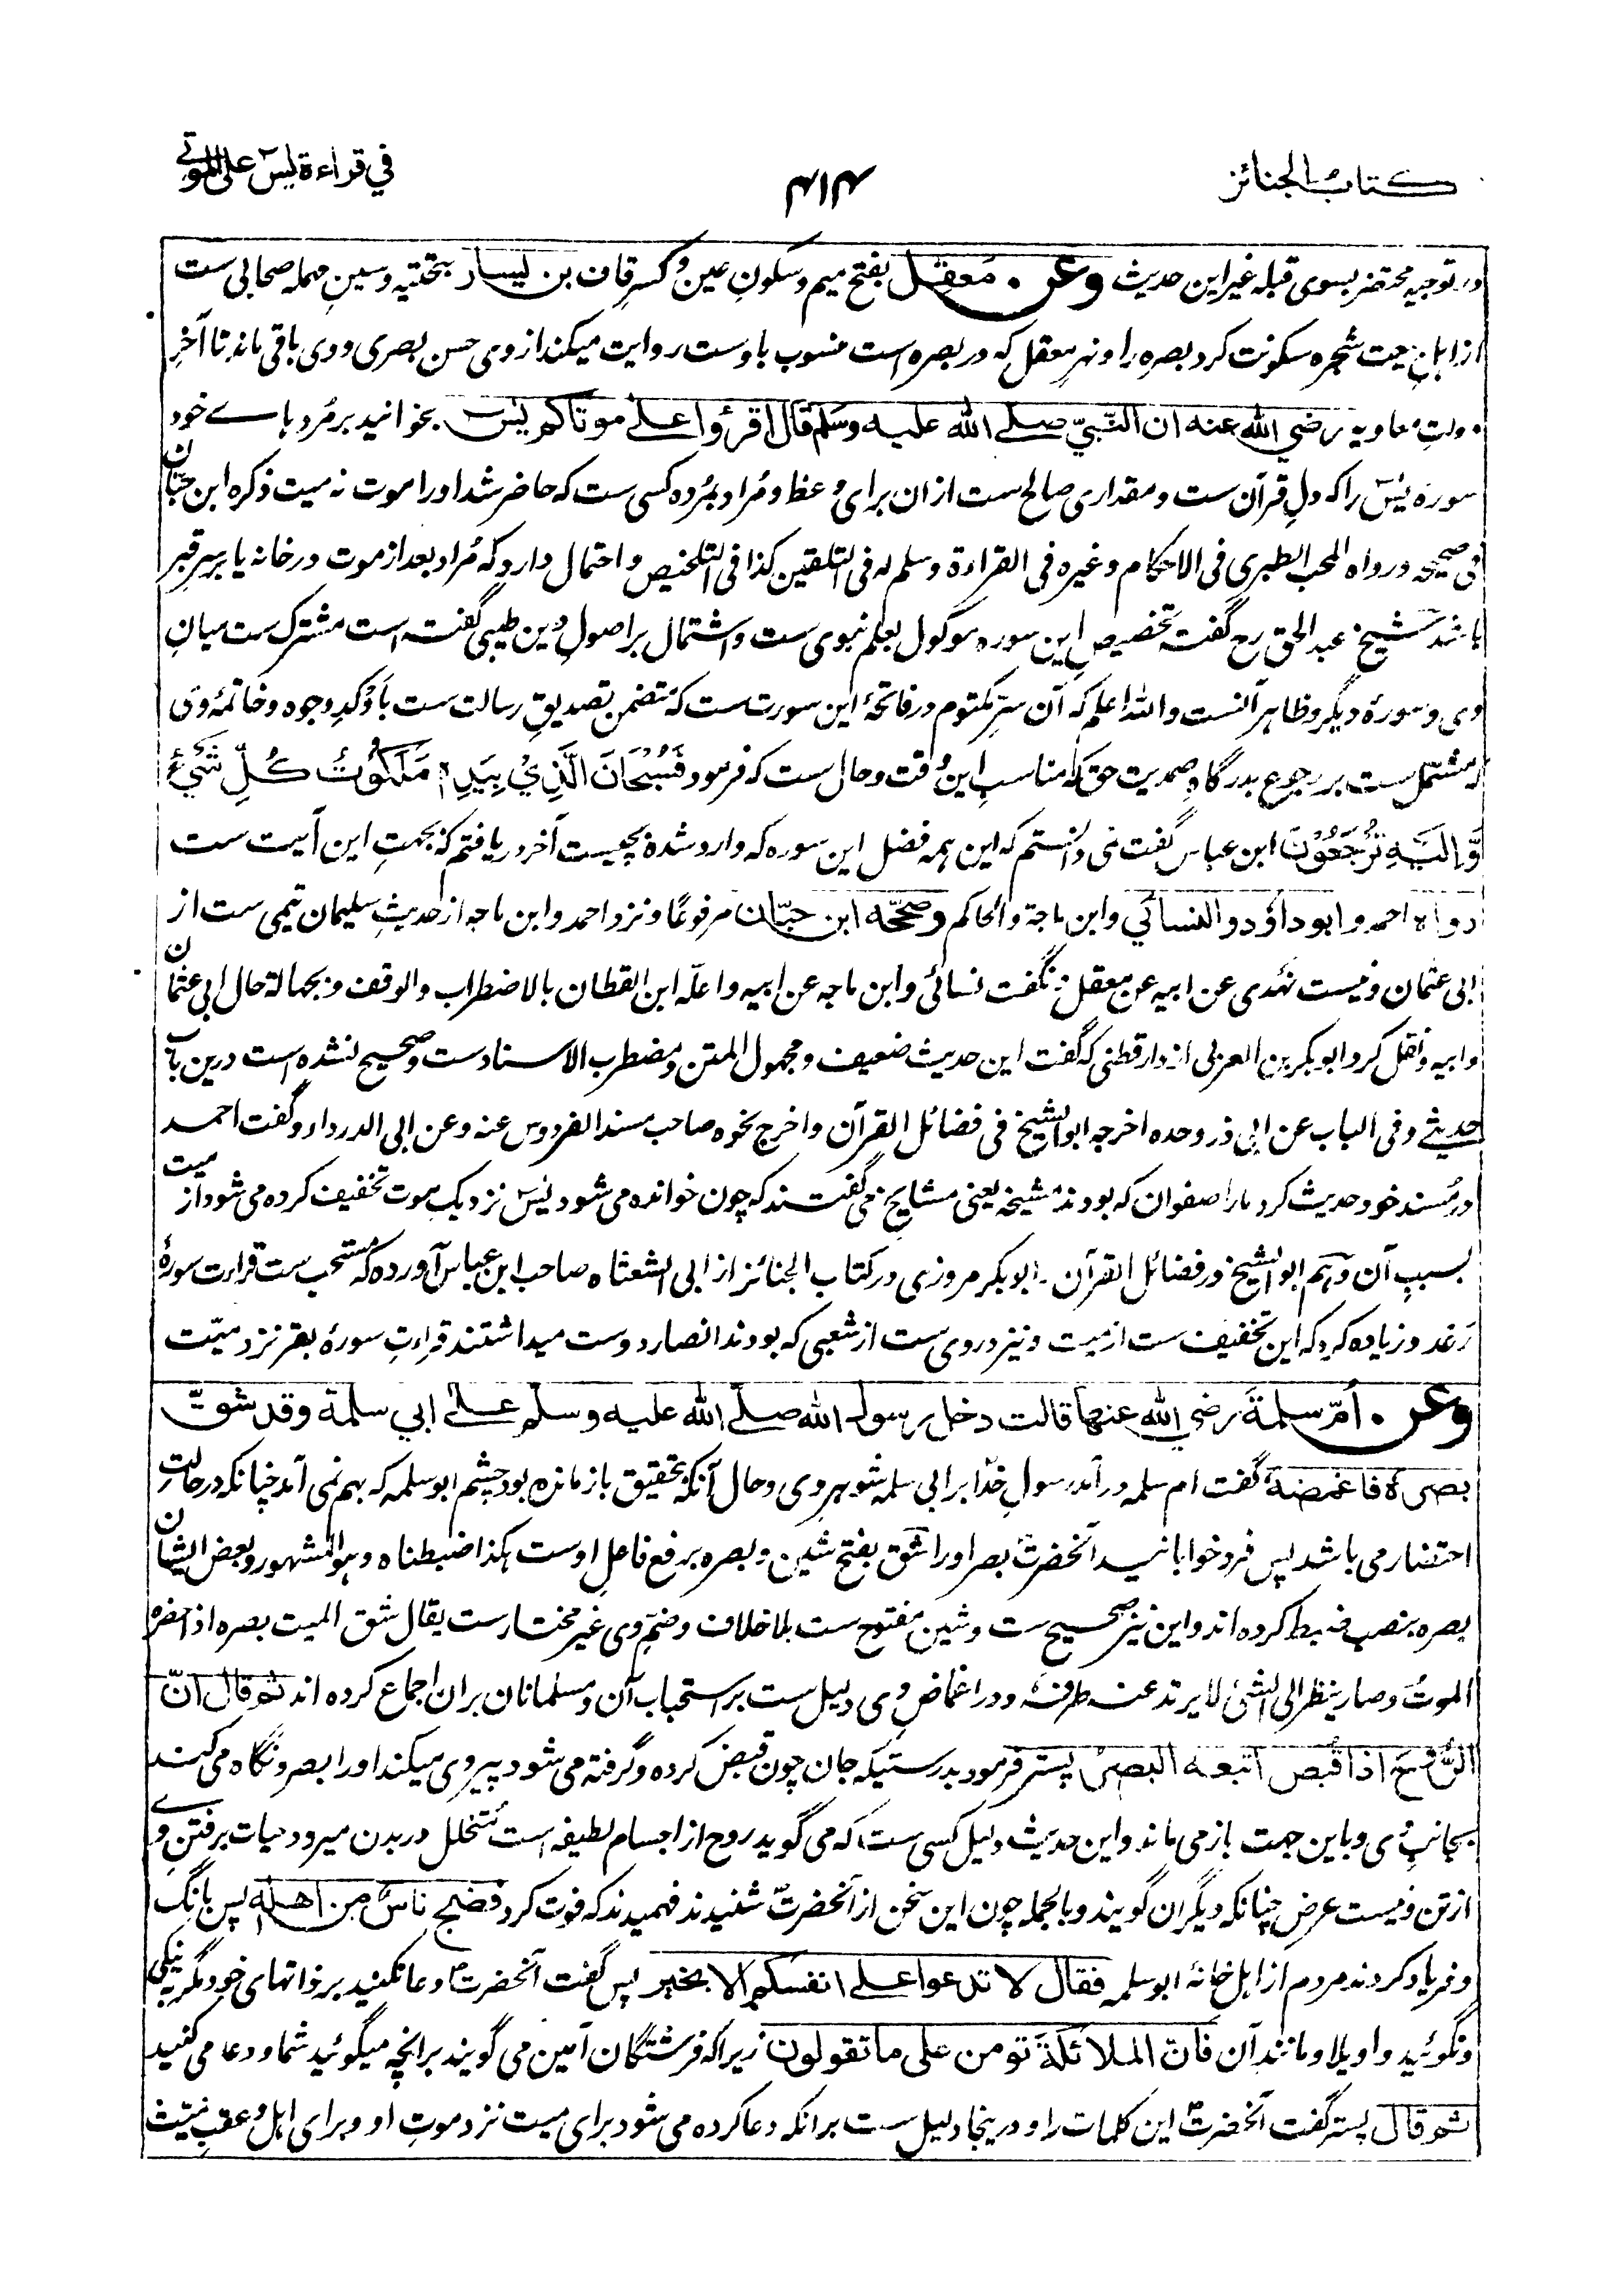 کتاب الجنائز
۴۱۴
في قراءة يٰسٓ على الموتے
در توجیه محتضر بسوی قبله غیر این حدیث وعن مَعقِل بفتح میم و سکونِ عین و کسرِ قاف بن یسار بتحتیه و سینِ مهمله صحابی ست
از اهلِ بیعت شجره سکونت کرد بصره را و نهرِ معقل که در بصره است منسوب باوست روایت میکند از وی حسن بصری و وی باقی ماند تا آخرِ
دولتِ معاویه رضي الله عنه ان النّبيّ صلے الله عليه وسَلم قال اقرؤا علے موتاکم یٰسٓ بخوانید بر مُرد ہاے خود
سورهٔ یٰسٓ را که دلِ قرآن ست و مقداری صالح ست ازان برای وعظ و مُراد بمُرده کسی ست که حاضر شد او را موت نه میت ذکره ابن حبّان
فی صحیحه و رواه المحب الطبری فی الاحکام و غیره فی القراءة و سلم له فی التلقین کذا فی التلخیص و احتمال دارد که مُراد بعد از موت در خانه یا بر سرِ قبر
باشد شیخ عبد الحق رح گفت تخصیصِ این سوره موکول بعلم نبوی ست و اشتمال بر اصولِ دین طیبی گفته است مشترک ست میانِ
وی و سورهٔ دیگر و ظاهر آنست والله اعلم که آن سرّ مکتوم در فاتحهٔ این سورت ست که متضمن تصدیقِ رسالت ست باَوْکدِ وجوه و خاتمهٔ وی
که مشتمل ست بر رجوع بدرگاهِ صمدیت حق که مناسبِ این وقت و حال ست که فرمود فَسُبْحَانَ الَّذِيْ بِيَدِهٖ مَلَكُوْتُ كُلِّ شَيْءٍ
وَّاِلَيْهِ تُرْجَعُوْنَ ابن عباس گفت نمی دانستم که این همه فضل این سوره که وارد شده بچیست آخر دریافتم که بجهتِ این آیت ست
رواه احمد و ابو داؤد و النسائي و ابن ماجة و الحاکم وصححّه ابن حبّان مرفوعًا و نزد احمد و ابن ماجه از حدیثِ سلیمان تیمی ست از
ابی عثمان و نیست نهدی عن ابیه عن معقل و نگفت نسائی و ابن ماجه عن ابیه و اعلّه ابن القطان بالاضطراب والوقف و بجهالة حال ابی عثمان
و ابیه و نقل کرد ابوبکر بن العربی از دارقطنی که گفت این حدیث ضعیف و مجهول المتن و مضطرب الاسناد ست و صحیح نشده است درین باب
حدیثے و فی الباب عن ابی ذر وحده اخرجه ابو الشیخ فی فضائل القرآن و اخرج نحوه صاحب مسند الفردوس عنه و عن ابی الدرداء و گفت احمد
در مُسندِ خود حدیث کرد ما را صفوان که بودند مشیخه یعنی مشایخ می گفتند که چون خوانده می شود یٰسٓ نزدیکِ موت تخفیف کرده می شود از میت
بسببِ آن و هم ابو الشیخ در فضائل القرآن و ابوبکر مروزی در کتاب الجنائز از ابی الشعثاء صاحب ابن عباس آورده که مستحب ست قراءت سورهٔ
رَعْد و زیاده کرد که این تخفیف ست از میت و نیز مروی ست از شعبی که بودند انصار دوست میداشتند قراءتِ سورهٔ بقر نزدِ میّت
وعن اُمّ سلمةَ رضي الله عنها قالت دخل رسول الله صلّے الله عليه وسلم علےٰ ابي سلمة وقد شقّ
بصره فاغمضه گفت ام سلمه درآمد رسولِ خدا بر ابی سلمه شوهر وی و حال آنکه بتحقیق باز مانده بود چشم ابو سلمه که بهم نمی آمد چنانکه در حالتِ
احتضار می باشد پس فرو خوابانید آنحضرتؐ بصر او را شَقّ بفتح شین و بصره برفع فاعلِ اوست هکذا ضبطناه و هو المشهور و بعض ایشان
بصره بنصب ضبط کرده اند و این نیز صحیح ست و شین مفتوح ست بلا خلاف و ضمّ وی غیر مختار ست یقال شق المیت بصره اذا حضره
الموتُ و صار ینظر الی الشئ لا یرتد عنه طرفه و در اغماضِ وی دلیل ست بر استحباب آن و مسلمانان بران اجماع کرده اند ثم قال انّ
الرُّوحَ اذا قُبض اتبعه البصرُ پستر فرمود بدرستیکه جان چون قبض کرده و گرفته می شود پیروی میکند او را بصر و نگاه می کند
بجانبِ وی و باین جهت باز می ماند و این حدیث دلیل کسی ست که می گوید روح از اجسام لطیفه است متخلل در بدن میرود حیات برفتنِ وے
از تن و نیست عرض چنانکه دیگران گویند و بالجمله چون این سخن از آنحضرتؐ شنیدند فهمیدند که فوت کرد فضج ناسٌ من اهله پس بانگ
و فریاد کردند مردم از اهل خانهٔ ابو سلمه فقال لا تدعوا علےٰ انفسکم الا بخیر پس گفت آنحضرتؐ دعا نکنید بر ذاتهای خود مگر به نیکی
و نگوئید واویلا و مانندِ آن فانّ الملائکةَ تومن علی ما تقولون زیراکه فرشتگان آمین می گویند بر انچه میگوئید شما و دعا می کنید
ثم قال پستر گفت آنحضرتؐ این کلمات را و درینجا دلیل ست برانکه دعا کرده می شود برای میت نزد موتِ او و برای اهل و عقبِ میّت